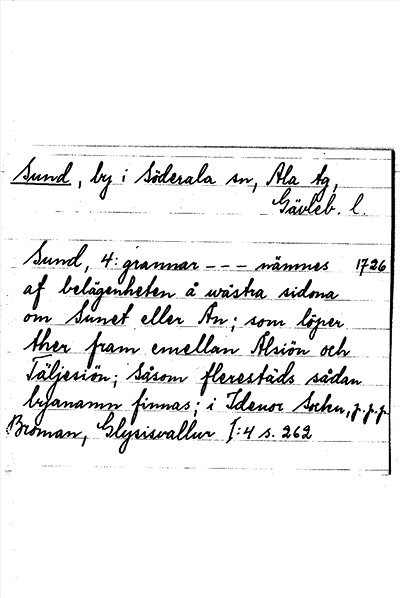 Sund, by i Söderala sn, Ala tg,
Gävleb. l.
Sund, 4: grannar - - - nämnes 1726
af belägenheten å wästra sidona
om Sunet eller Ån; som löper
ther fram emellan Alsiön och
Täljesiön; Såsom flerestäds sådan
byanamn finnas; i Idenor Sochn, p.p.p.
Broman, Glysisvallur I:4 s. 262